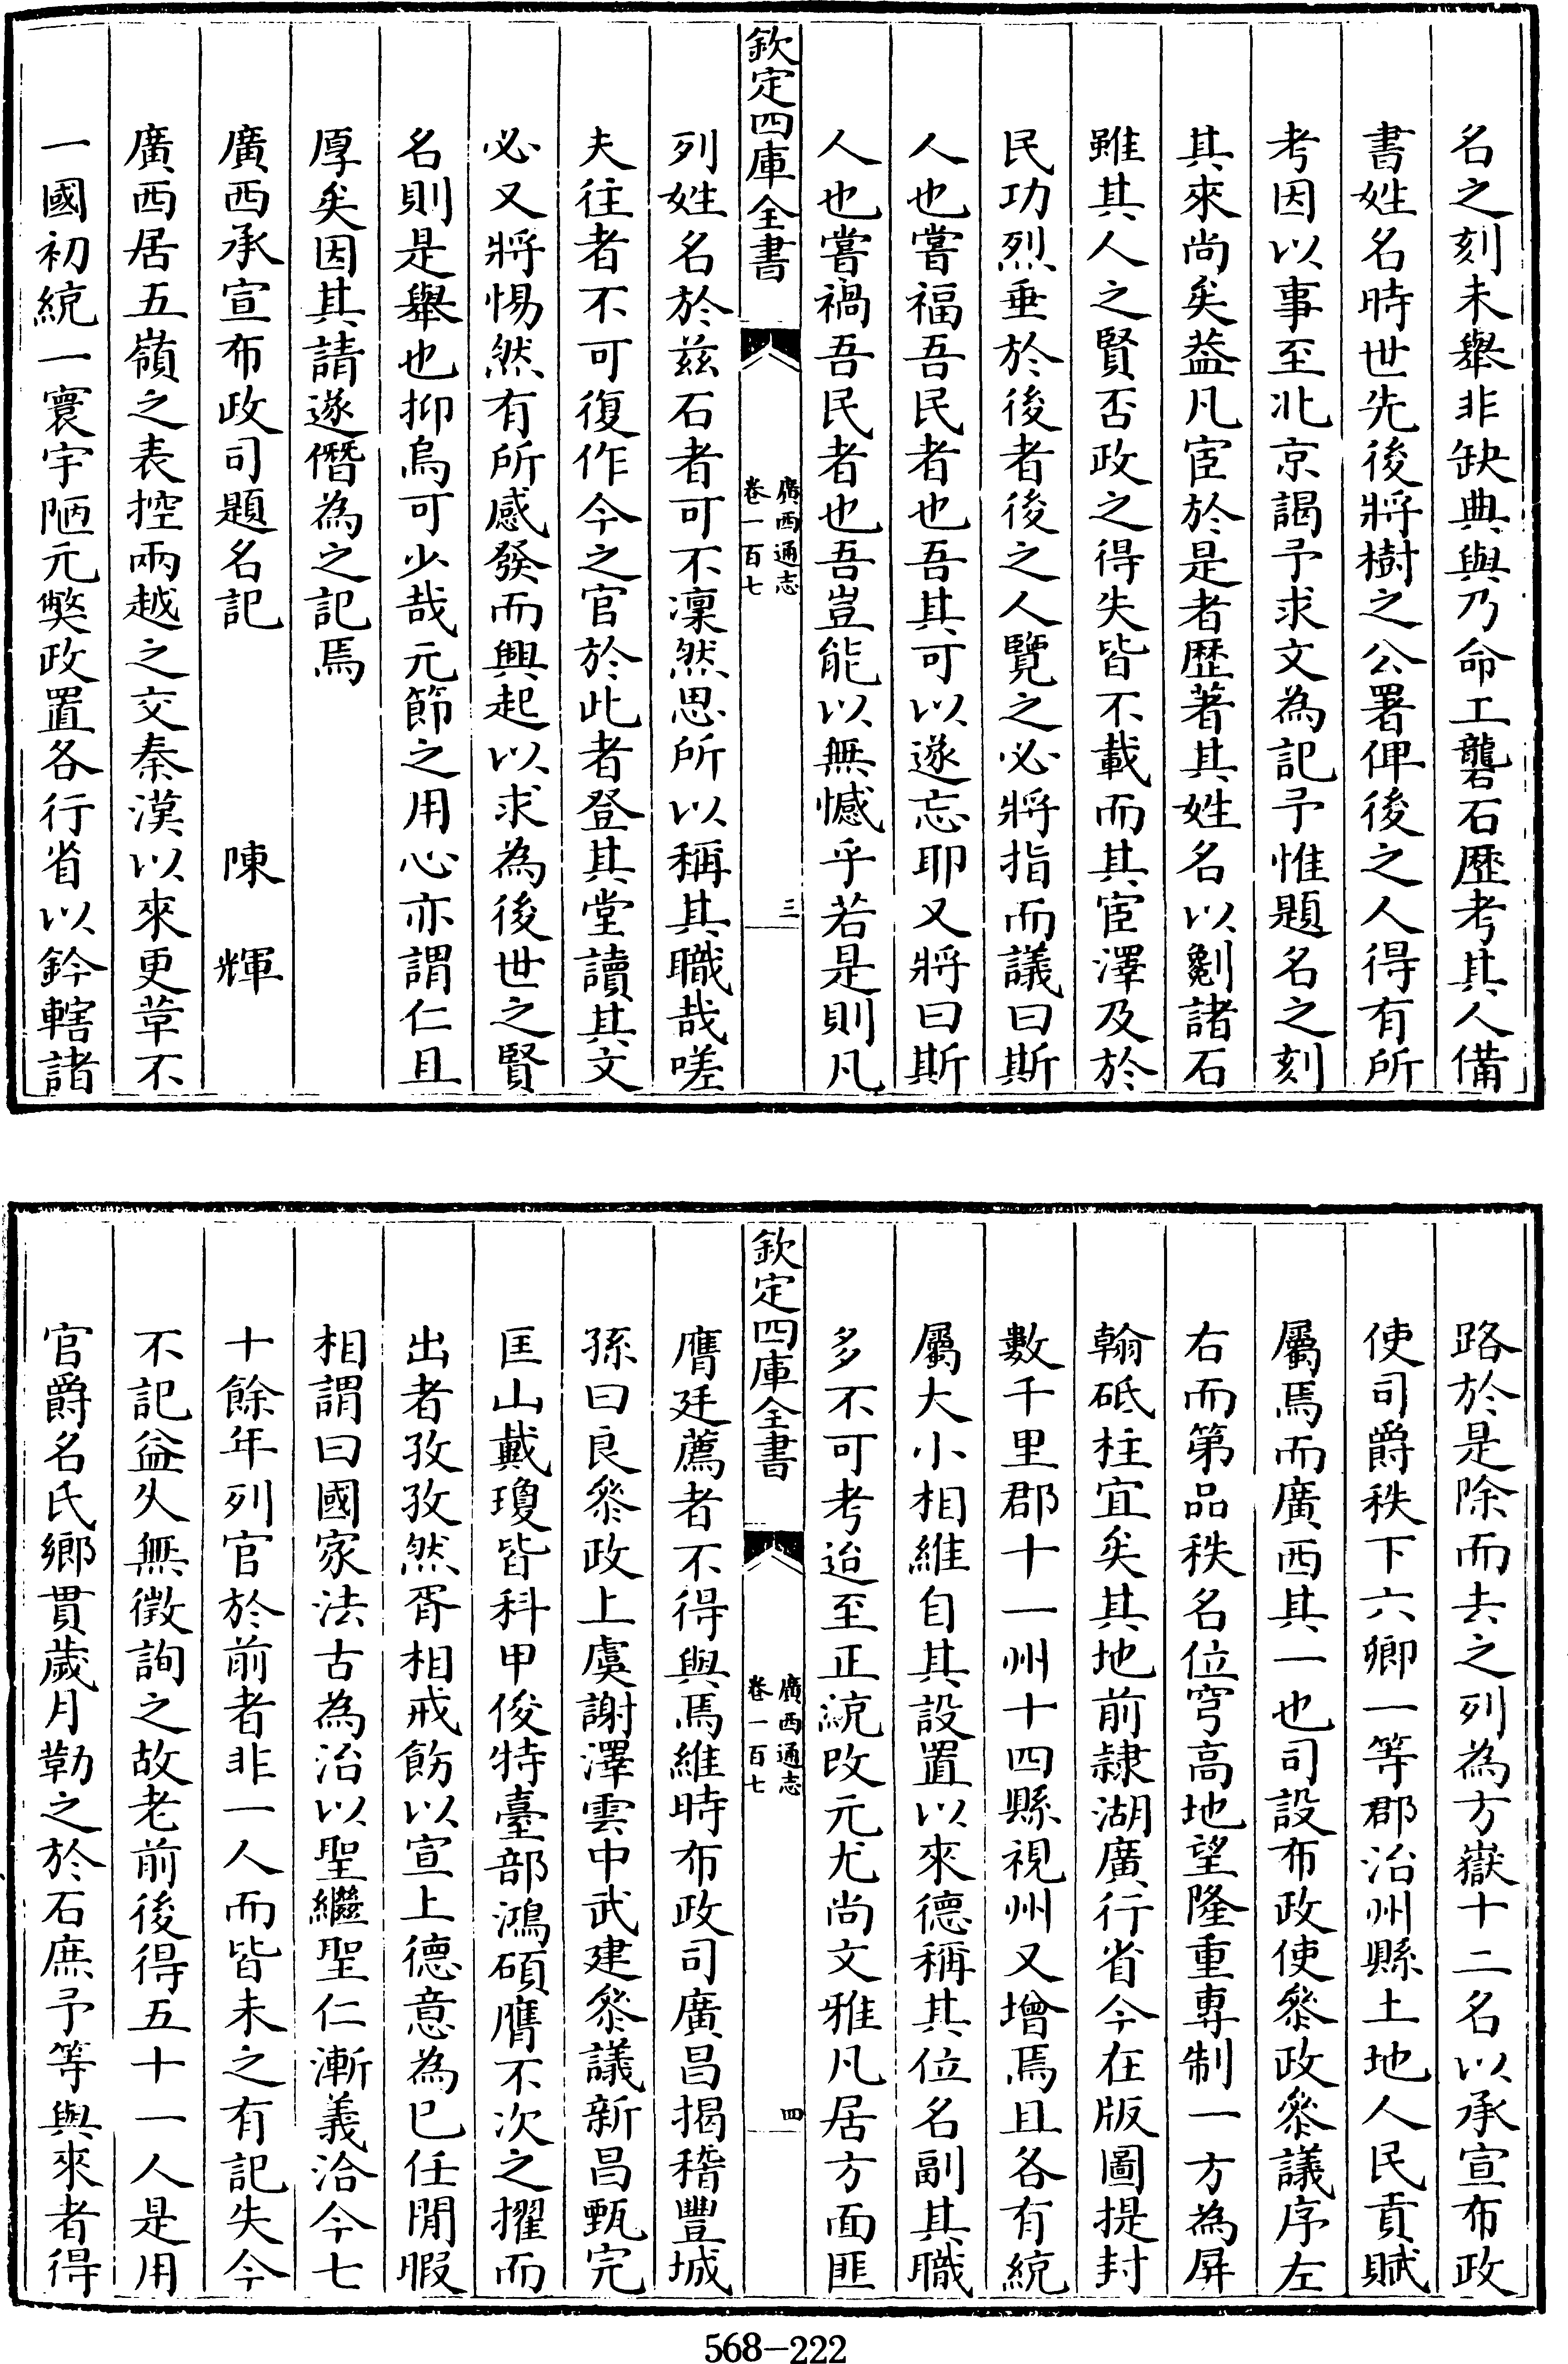 名之刻未舉非缺典與乃命工礱石歷考其人備
書姓名時世先後將樹之公署俾後之人得有所
考因以事至北京謁予求文為記予惟題名之刻
其來尚矣葢凡宦於是者歷著其姓名以劖諸石
雖其人之賢否政之得失皆不載而其宦澤及於
民功烈垂於後者後之人覽之必將指而議曰斯
人也嘗福吾民者也吾其可以遂忘耶又將曰斯
人也嘗禍吾民者也吾豈能以無憾乎若是則凡
欽定四庫全書
廣西通志
卷一百七
三
列姓名於兹石者可不凜然思所以稱其職哉嗟
夫往者不可復作今之官於此者登其堂讀其文
必又將惕然有所感發而興起以求為後世之賢
名則是舉也抑烏可少哉元節之用心亦謂仁且
厚矣因其請遂僭為之記焉
廣西承宣布政司題名記 陳輝
廣西居五嶺之表控兩越之交秦漢以來更革不
一國初統一寰宇陋元獘政置各行省以鈐轄諸
路於是除而去之列為方嶽十二名以承宣布政
使司爵秩下六卿一等郡治州縣土地人民貢賦
屬焉而廣西其一也司設布政使叅政叅議序左
右而第品秩名位穹高地望隆重專制一方為屏
翰砥柱宜矣其地前隷湖廣行省今在版圖提封
數千里郡十一州十四縣視州又增焉且各有統
屬大小相維自其設置以來德稱其位名副其職
多不可考迨至正統改元尤尚文雅凡居方面匪
欽定四庫全書
廣西通志
卷一百七
四
膺廷薦者不得與焉維時布政司廣昌揭稽豐城
孫曰良叅政上虞謝澤雲中武建叅議新昌甄完
匡山戴瓊皆科甲俊特臺部鴻碩膺不次之擢而
出者孜孜然胥相戒飭以宣上德意為已任閒暇
相謂曰國家法古為治以聖繼聖仁漸義洽今七
十餘年列官於前者非一人而皆未之有記失今
不記益久無徵詢之故老前後得五十一人是用
官爵名氏鄉貫歲月勒之於石庶予等與來者得
568-222